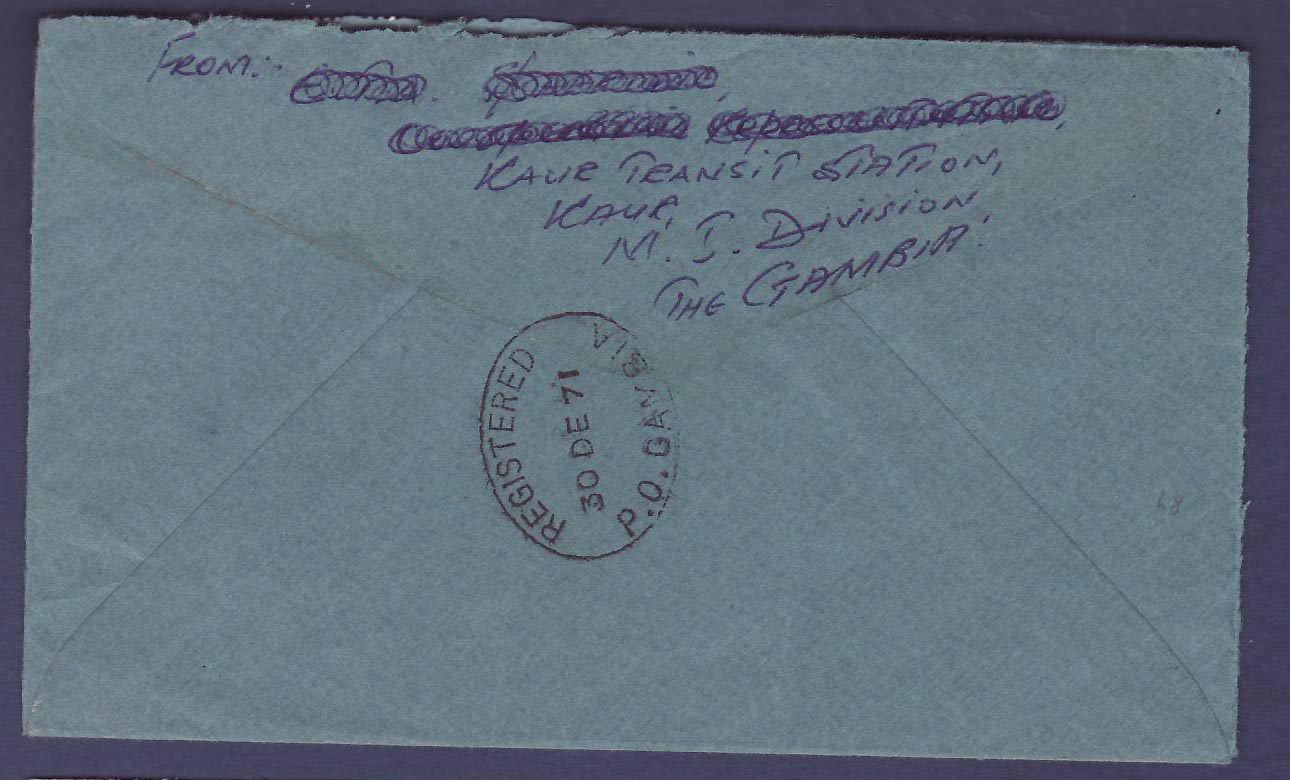 FROM:
KAUR TRANSIT STATION,
KAUR,
M. I. DIVISION,
THE GAMBIA.
REGISTERED
30 DE 71
P.O. GAMBIA
68